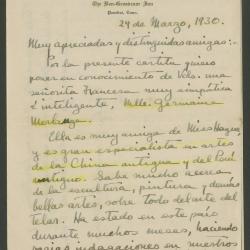 The Ben-Grosvenor Inn
Pomfret, Conn.
29 de Marzo, 1930.
Muy apreciadas y distinguidas amigas:-
Por la presente cartita quiero
poner en conocimiento de Vds. una
señorita Francesa muy simpática
é inteligente, Mlle. Germaine
Ella es muy amiga de Miss
y es gran especialista en artes
de la China antigua y del Perú
antiguo. Sabe mucho acerca
de la escultura, pintura y demás
bellas artes, sobre todo del arte del
telar. Ha estado en este país
durante muchos meses, haciendo
varias indagaciones en nuestros